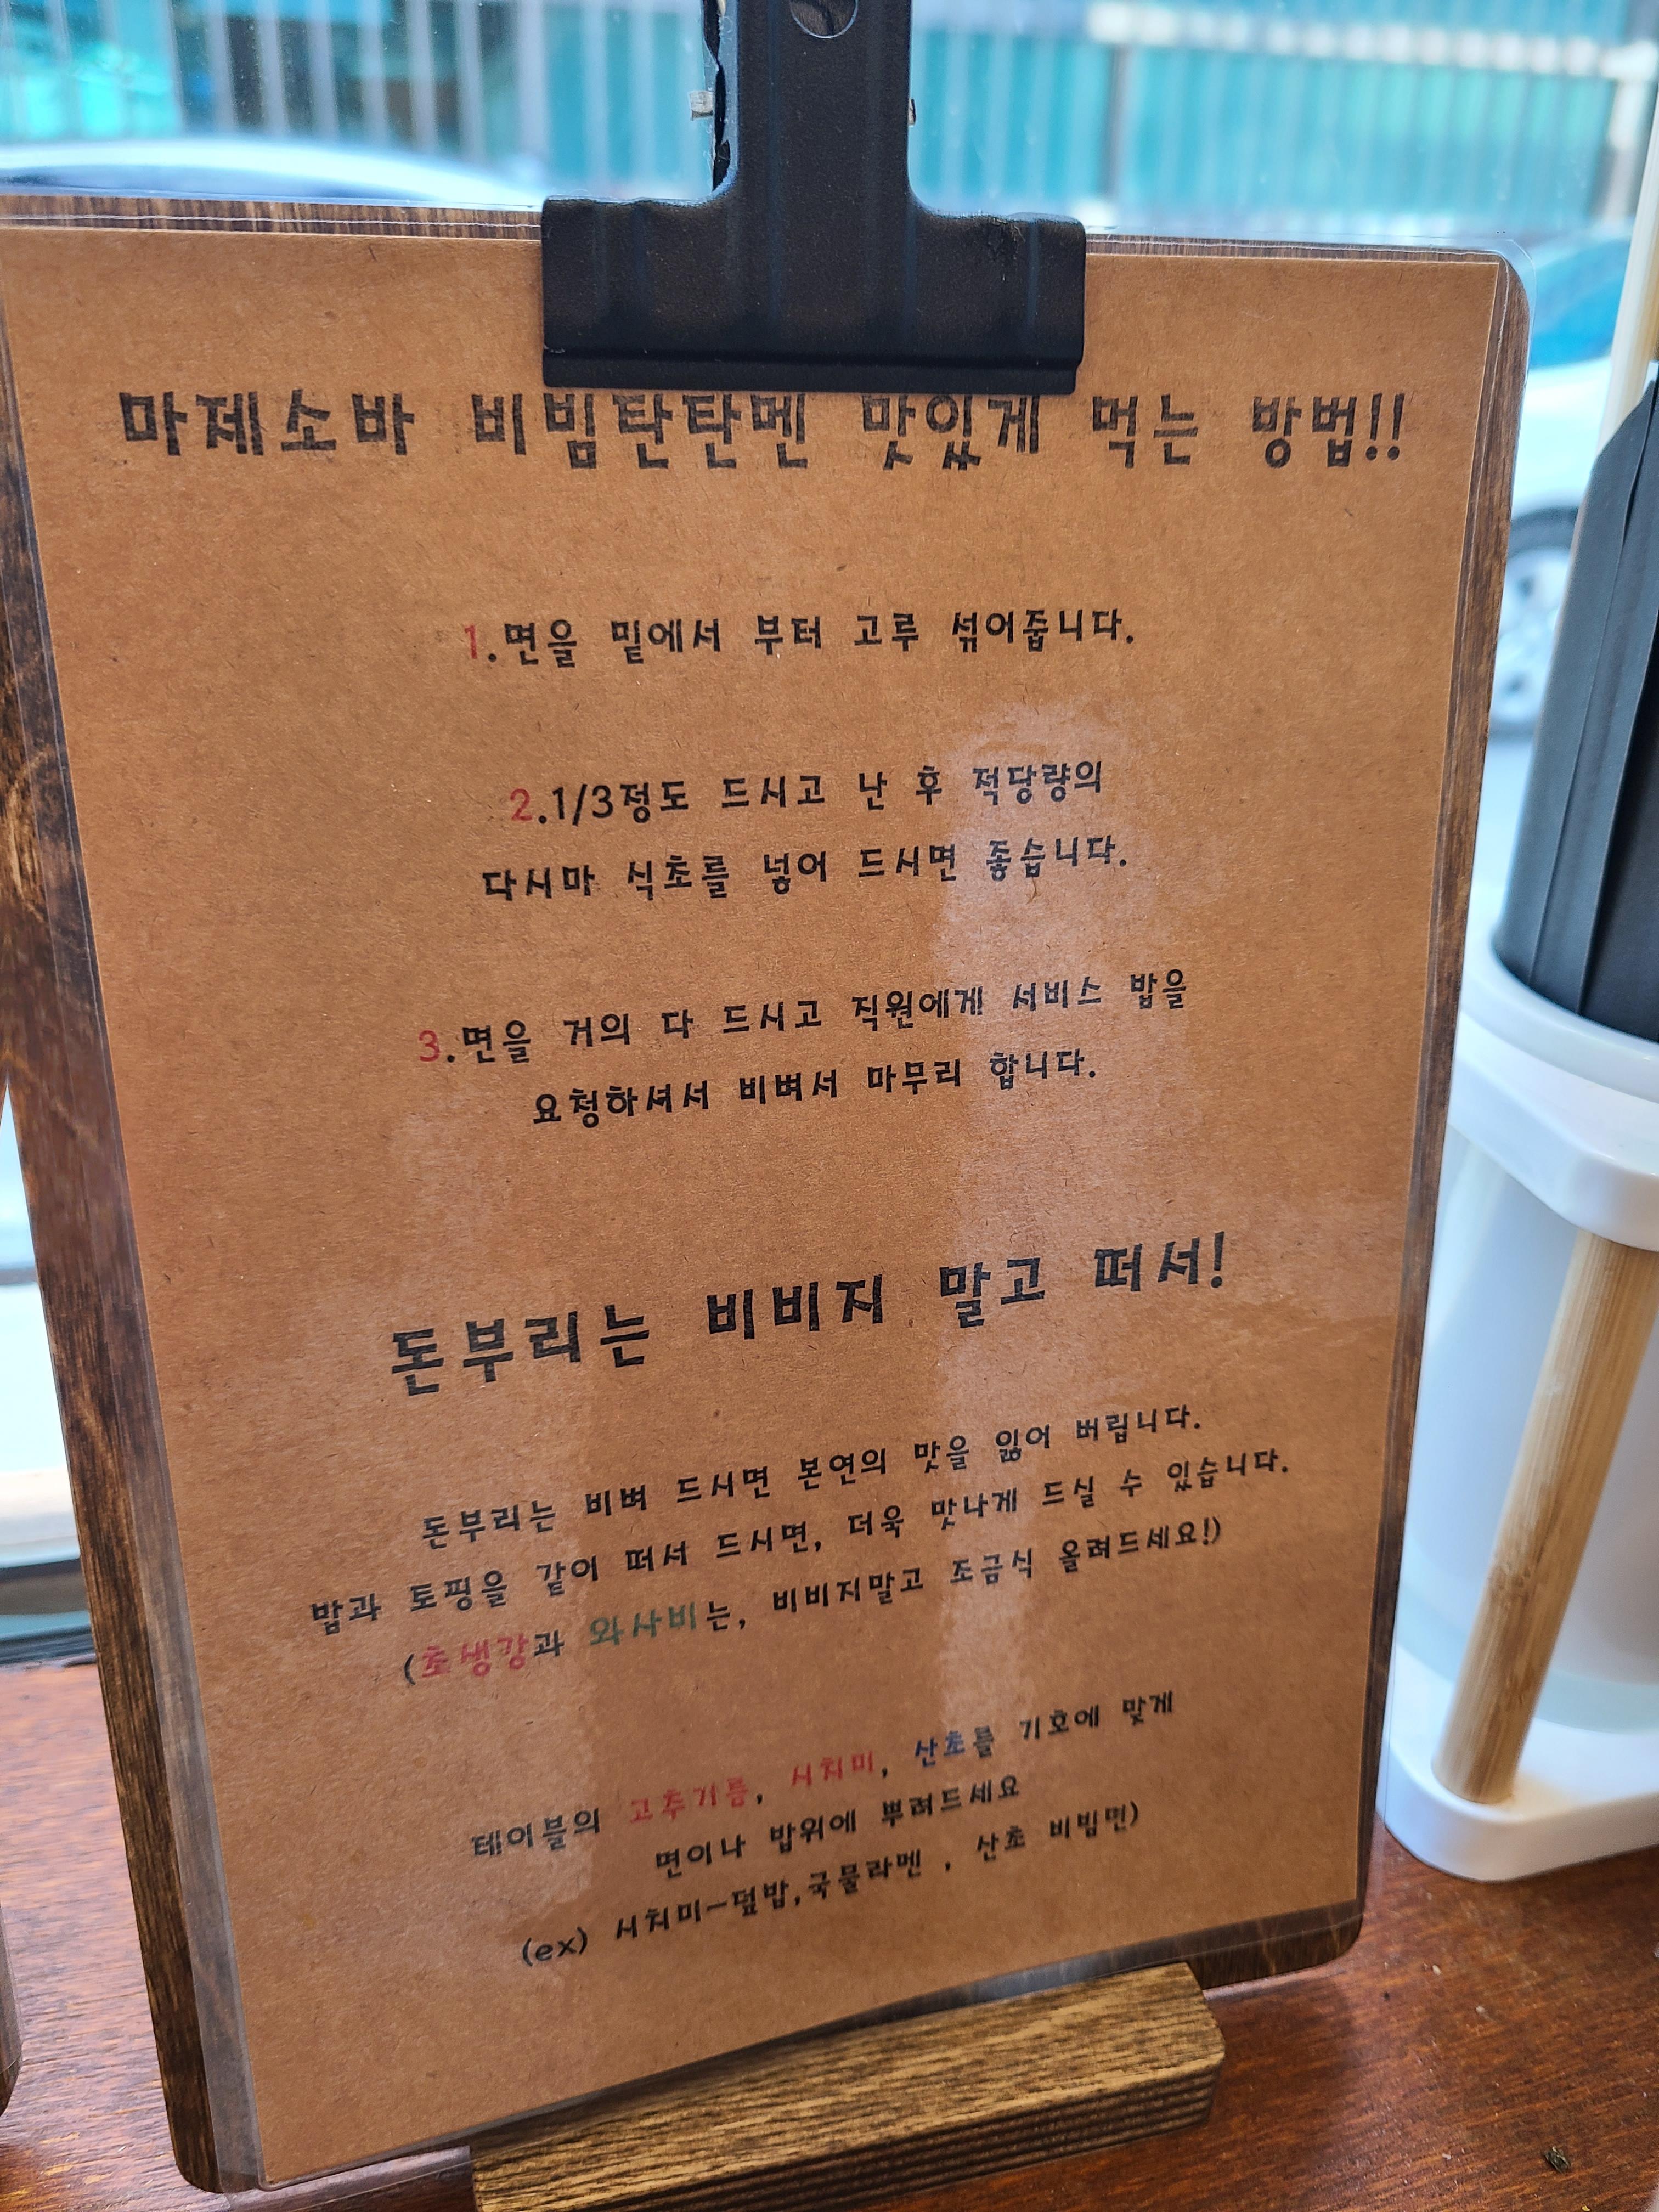 마제소바 비빔탄탄멘 맛있게 먹는 방법!!
1.면을 밑에서 부터 고루 섞어줍니다.
2.1/3정도 드시고 난 후 적당량의
다시마 식초를 넣어 드시면 좋습니다.
3.면을 거의 다 드시고 직원에게 서비스 밥을
요청하셔서 비벼서 마무리 합니다.
돈부리는 비비지 말고 떠서!
돈부리는 비벼 드시면 본연의 맛을 잃어 버립니다.
밥과 토핑을 같이 떠서 드시면, 더욱 맛나게 드실 수 있습니다.
(초생강과 와사비는, 비비지말고 조금식 올려드세요!)
테이블의 고추기름, 시치미, 산초를 기호에 맞게
면이나 밥위에 뿌려드세요
(ex) 시치미-덮밥,국물라멘 , 산초 비빔면)